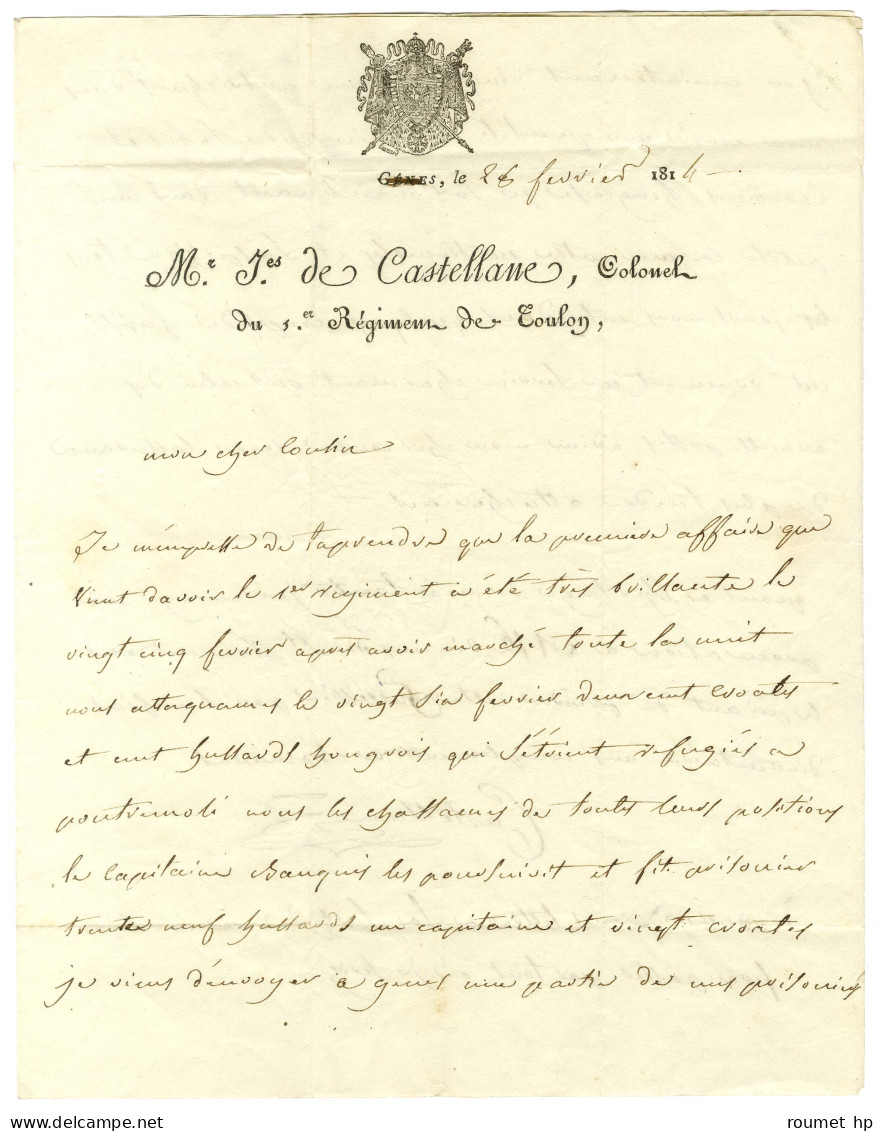 GÊNES, le 28 fevrier 1814
M.r J.es de Castellane, Colonel
du 1.er Régiment de Toulon,
mon cher Coulin
Je m'enpresse de t'aprendre que la premiere affaire que
vient davoir le 1er regiment a été très brillante le
vingt cinq fevrier apres avoir marché toute la nuit
nous attaquames le vingt six fevrier deux cent croates
et cent hussards hongrois qui s'étoient refugiés a
pontremoli nous les chassames de toutes leurs positions
le capitaine Bauquis les poursuivit et fit prisonier
trente neuf hussards un capitaine et vingt croates
je viens d'envoyer a genes une partie de nos prisoniers
Delcampe.net
roumet hp